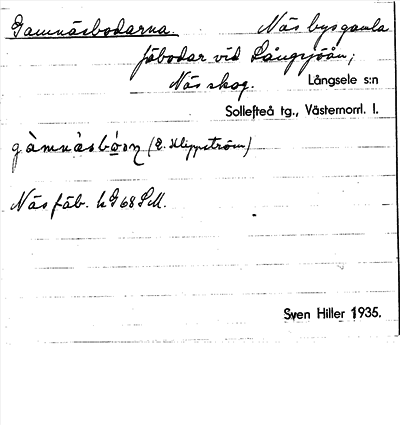 Gamnäsbodarna. Näs bys gamla
fäbodar vid Långsjöån;
Näs skog. Långsele s:n
Sollefteå tg., Västernorrl. l.
gàmnàsbó̱ɷn (E. Klippström)
Näs fäb. hG68SM.
Sven Hiller 1935.